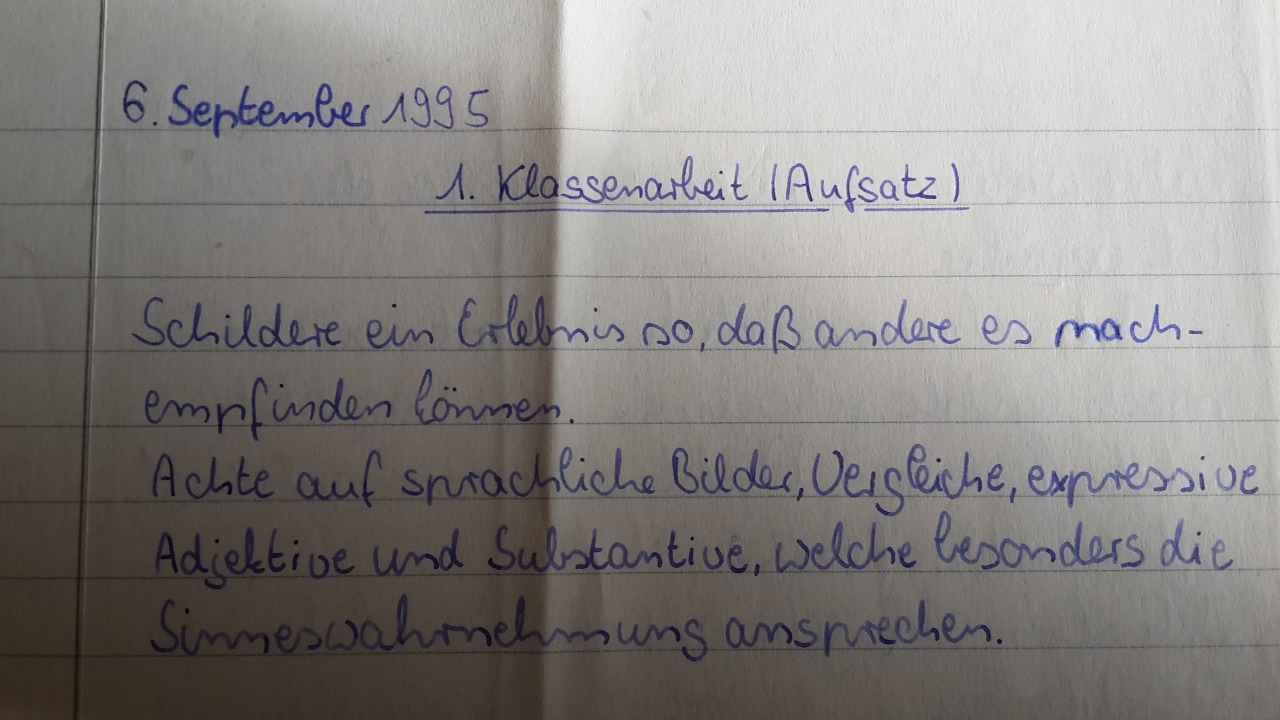 6. September 1995
1. Klassenarbeit (Aufsatz)
Schildere ein Erlebnis so, daß andere es nach-
empfinden können.
Achte auf sprachliche Bilder, Vergleiche, expressive
Adjektive und Substantive, welche besonders die
Sinneswahrnehmung ansprechen.